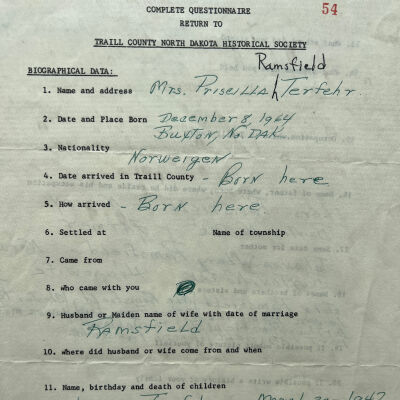 COMPLETE QUESTIONNAIRE 54
RETURN TO
TRAILL COUNTY NORTH DAKOTA HISTORICAL SOCIETY
Ramsfield
BIOGRAPHICAL DATA:
1. Name and address Mrs. Priscilla Terfehr.
2. Date and Place Born December 8, 1944
Buxton, No. Dak
3. Nationality
Norweigen
4. Date arrived in Traill County - Born here
5. How arrived - Born here.
6. Settled at Name of township
7. Came from
8. who came with you
9. Husband or Maiden name of wife with date of marriage
Ramsfield
10. where did husband or wife come from and when
11. Name, birthday and death of children